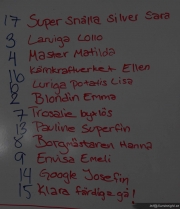 17 Super Snälla Silver Sara
3 Larviga Lollo
4 Master Matilda
Kärnkraftverket Ellen
Luriga Potatis Lisa
2 Blondin Emma
7 Trosalie
13 Pauline Superfin
8 Borgmästaren Hanna
9 Envisa Emeli
14 Google Josefin
15 Klara färdiga gå!